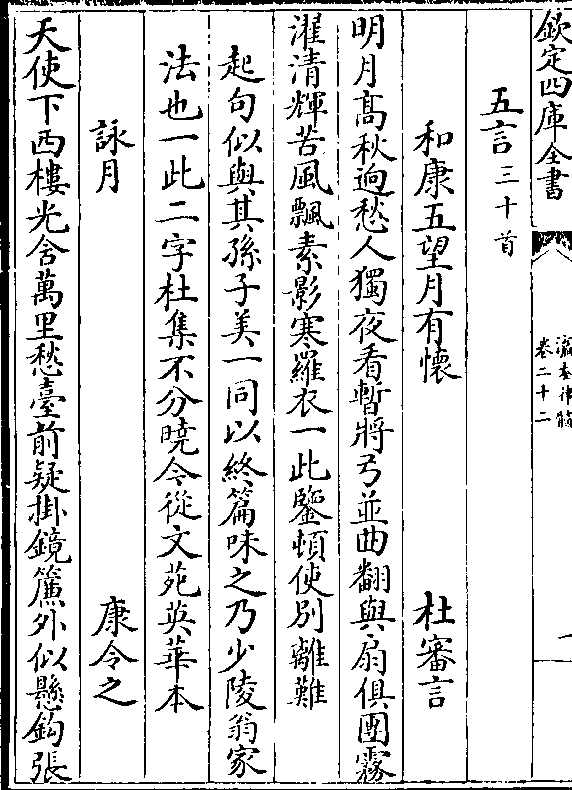 欽定四庫全書
瀛奎律髓
卷二十二
一
五言三十首
和康五望月有懷 杜審言
明月高秋逈愁人獨夜看暫將弓並曲翻與扇俱團霧
濯清輝苦風飄素影寒羅衣一此鑒頓使別離難
起句似與其孫子美一同以終篇味之乃少陵翁家
法也一此二字杜集不分曉今從文苑英華本
詠月 康令之
天使下西樓光含萬里愁臺前疑掛鏡簾外似懸鈎張